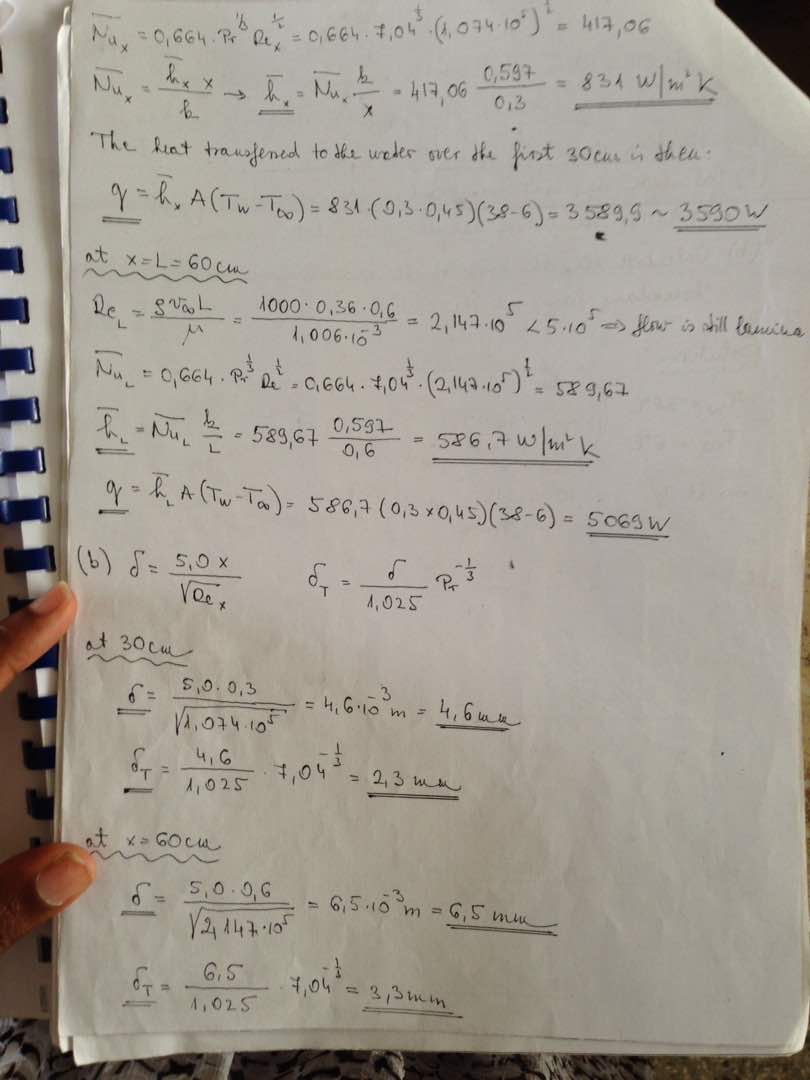 N̅u̅ₓ = 0,664 · Pr^⅓ Reₓ^½ = 0,664 · 7,04^⅓ · (1,074·10⁵)^½ = 417,06
N̅u̅ₓ = h̅ₓ x / k → h̅ₓ = N̅u̅ₓ k/x = 417,06 0,597/0,3 = 831 W/m²K
The heat transferred to the water over the first 30cm is then:
q = h̅ₓ A(T_w-T_∞) = 831·(0,3·0,45)(38-6) = 3589,9 ~ 3590W
at x=L=60cm
Re_L = ρv_∞L/μ = 1000·0,36·0,6 / 1,006·10⁻³ = 2,147·10⁵ < 5·10⁵ ⇒ flow is still lamina
N̅u̅_L = 0,664 · Pr^⅓ Re^½ = 0,664 · 7,04^⅓ · (2,147·10⁵)^½ = 589,67
h̅_L = N̅u̅_L k/L = 589,67 0,597/0,6 = 586,7 W/m²K
q = h̅_L A(T_w-T_∞) = 586,7 (0,3×0,45)(38-6) = 5069W
(b) δ = 5,0 x / √Reₓ δ_T = δ/1,025 Pr^-⅓
at 30cm
δ = 5,0·0,3 / √1,074·10⁵ = 4,6·10⁻³m = 4,6mm
δ_T = 4,6/1,025 · 7,04^-⅓ = 2,3 mm
at x=60cm
δ = 5,0·0,6 / √2,147·10⁵ = 6,5·10⁻³m = 6,5 mm
δ_T = 6,5/1,025 · 7,04^-⅓ = 3,3mm